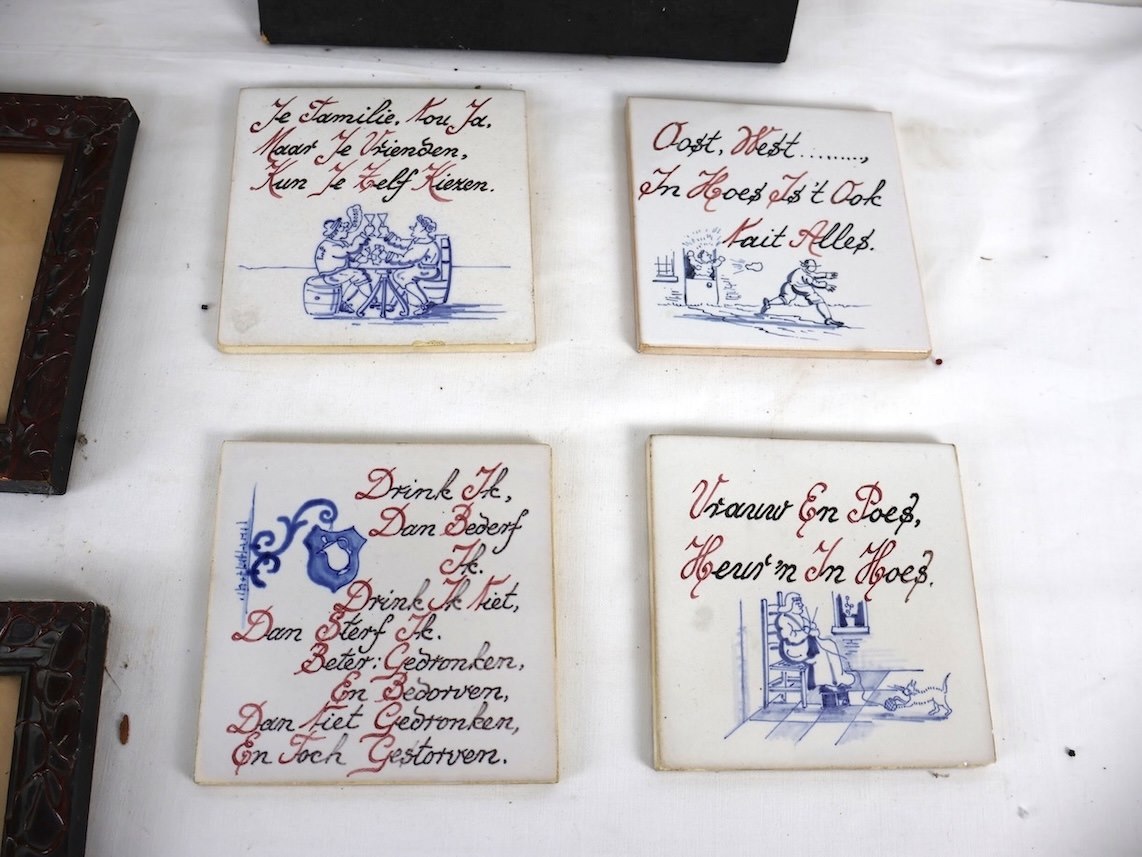 Je Familie, Nou Ja,
Maar Je Vrienden,
Kun Je Zelf Kiezen.
Oost, West.........,
In Hoes Is't Ook
Nait Alles.
Drink Ik,
Dan Bederf
Ik.
Drink Ik Niet,
Dan Sterf Ik.
Beter: Gedronken,
En Bedorven,
Dan Niet Gedronken,
En Toch Gestorven.
Vrauw En Poes,
Heur'n In Hoes.